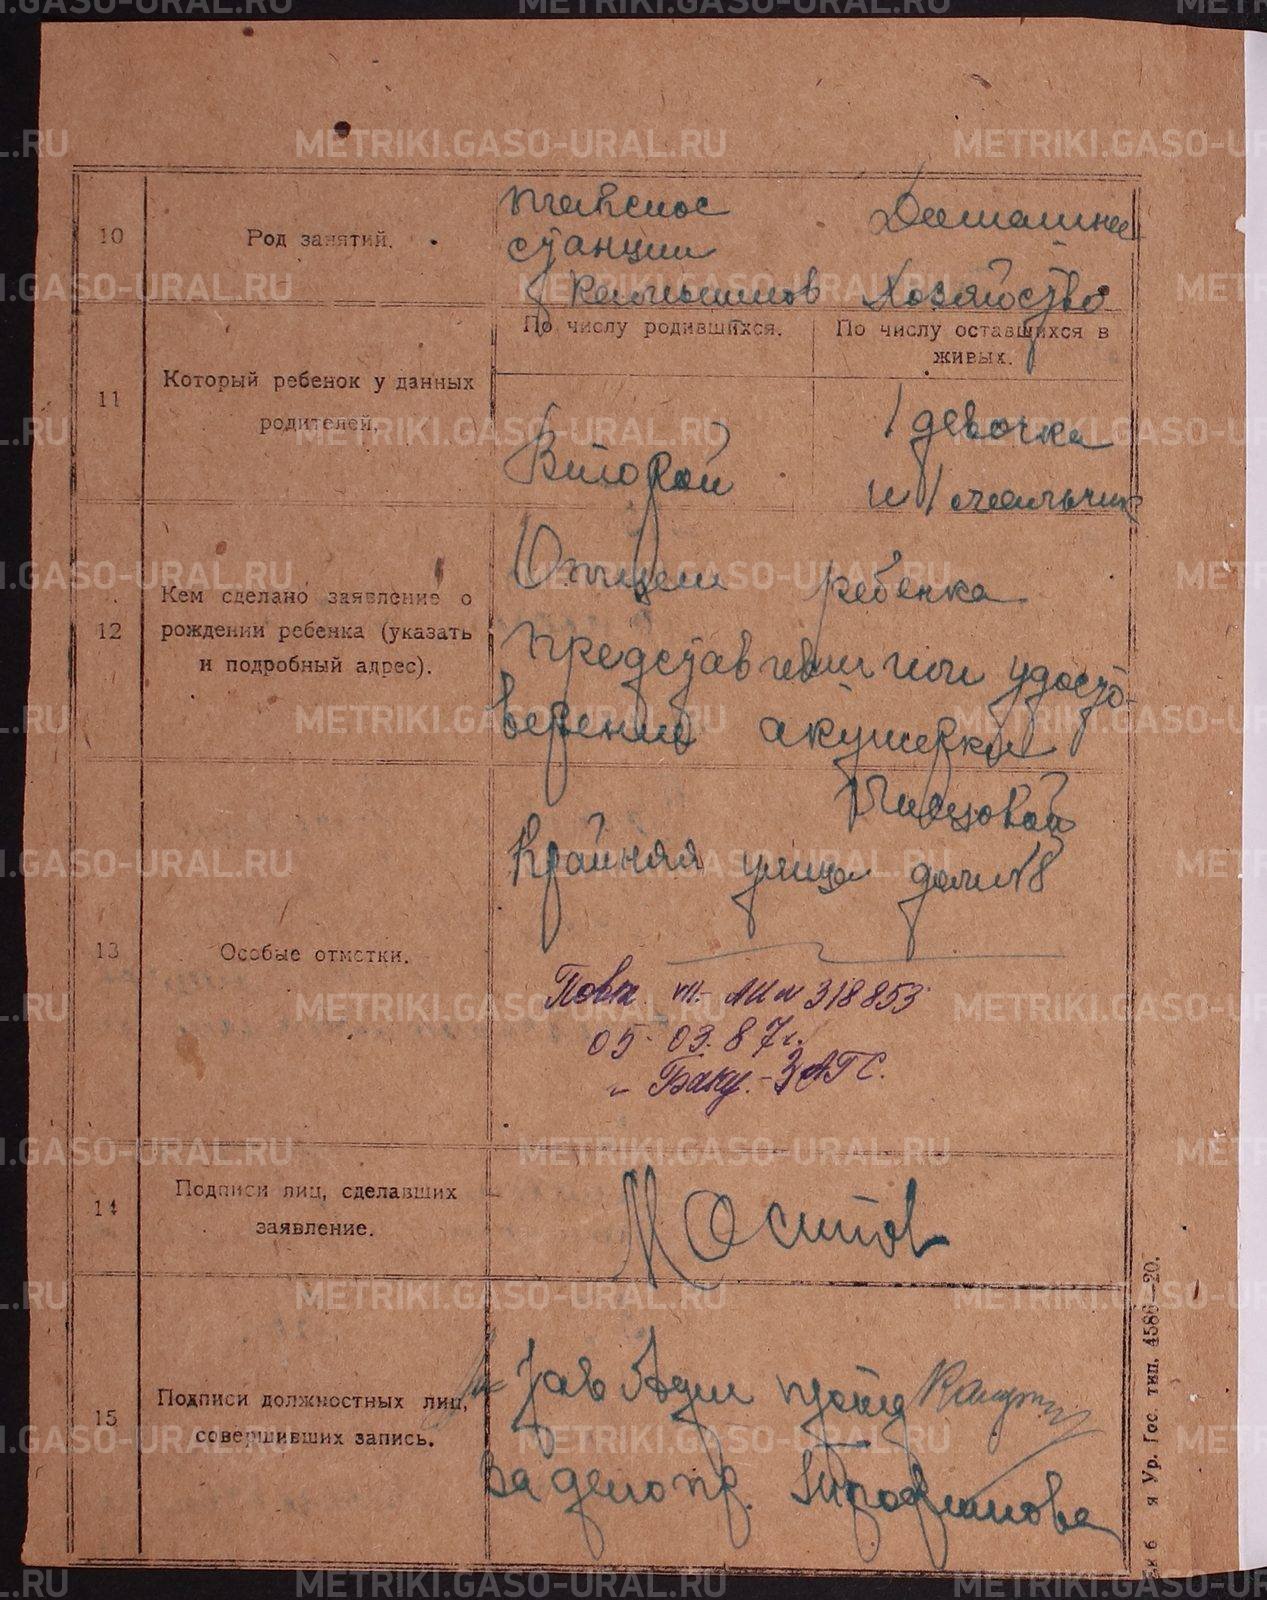 10
Род занятий.
станции
Камышлов
Домашнее
Хозяйство
11
Который ребенок у данных
родителей.
По числу родившихся.
По числу оставшихся в
живых.
Второй
1 девочка
и 1 мальчик
12
Кем сделано заявление о
рождении ребенка (указать
и подробный адрес).
Отцем ребенка
представившим удосто-
верение акушерки
Крайняя улица дом №8
13
Особые отметки.
Повт. 318853
05.03.87г.
Баку. ЗАГС.
14
Подписи лиц, сделавших
заявление.
М Осипов
15
Подписи должностных лиц,
совершивших запись.
Зав
За делопр. Трофимова
я Ур. Гос. тип. 4586—20.
METRIKI.GASO-URAL.RU